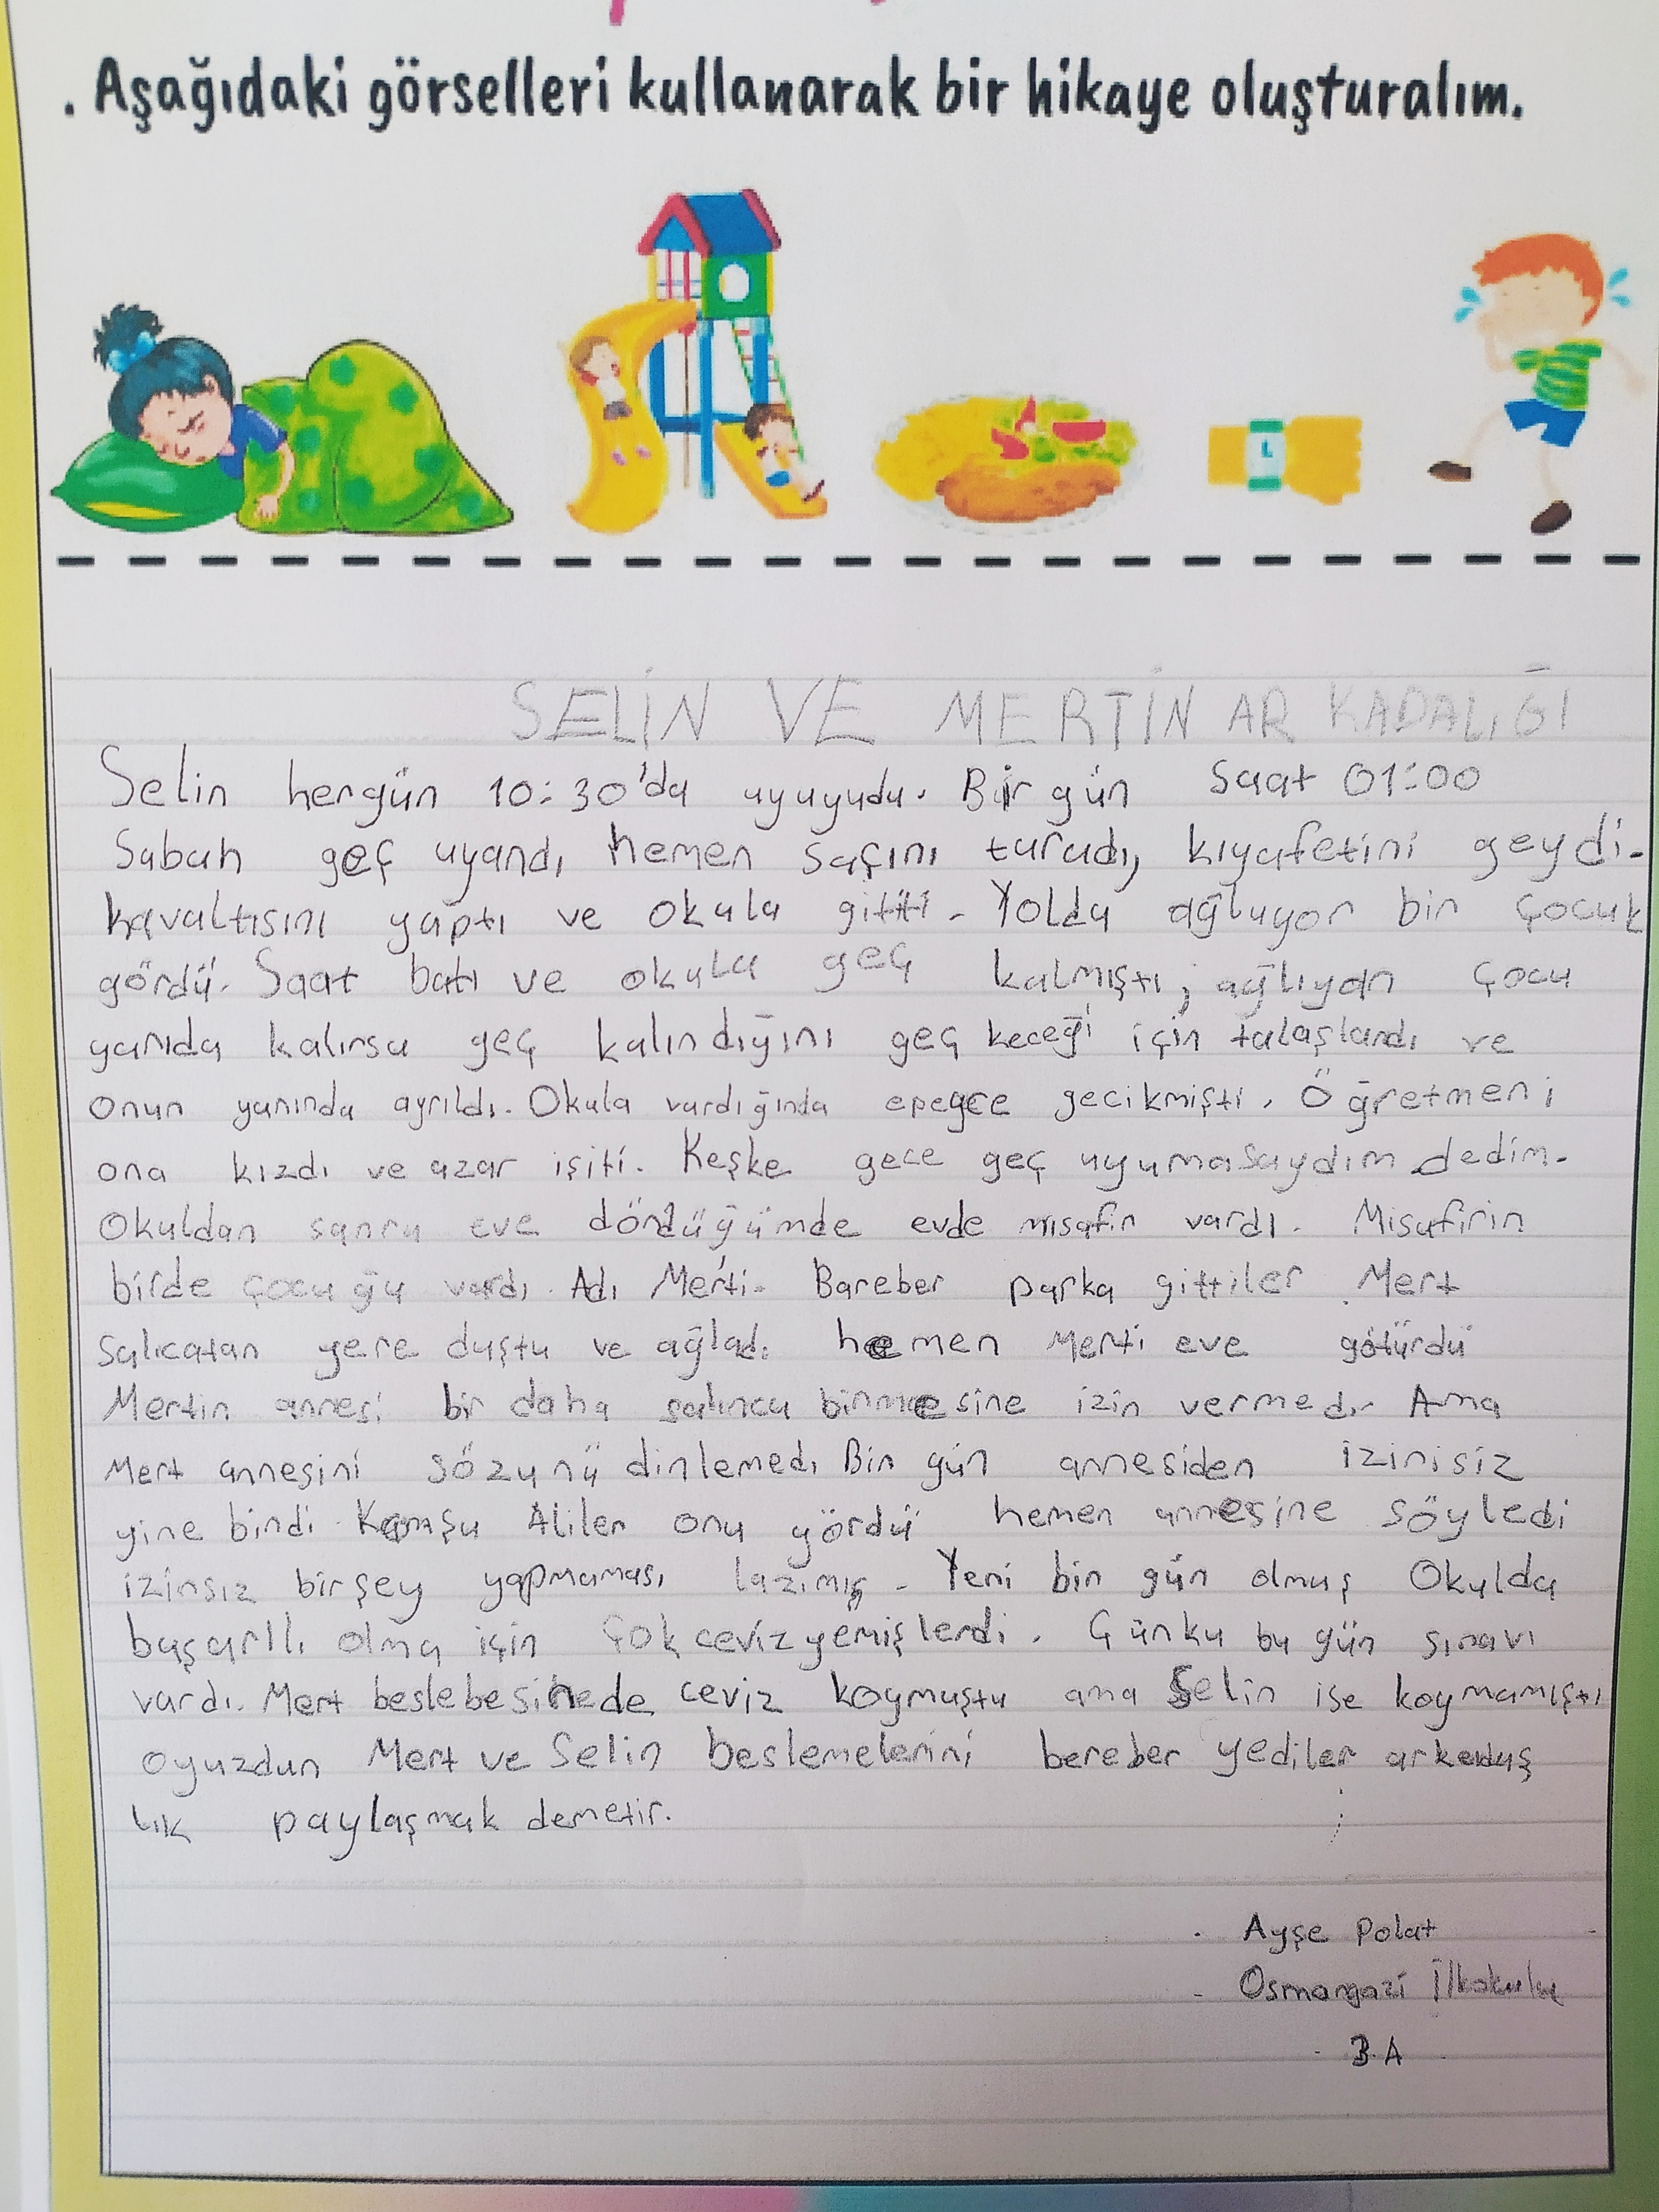 . Aşağıdaki görselleri kullanarak bir hikaye oluşturalım.
SELİN VE MERTİN ARKADALIĞI
Selin hergün 10:30'da uyuyudu. Bir gün saat 01:00
Sabah geç uyandı hemen saçını taradı, kıyafetini geydi.
kavaltısını yaptı ve okula gitti. Yolda ağluyor bir çocuk
gördü. Saat batı ve okula geç kalmıştı, ağlıyan çocu
yanıda kalırsa geç kalındığını geç keceği için talaşlandı ve
onun yanında ayrıldı. Okula vardığında epeyce gecikmişti. Öğretmeni
ona kızdı ve azar işiti. Keşke gece geç uyumasaydım dedim.
Okuldan sanra eve döndüğümde evde misafir vardı. Misafirin
birde çocuğu vardı. Adı Merti. Bareber parka gittiler. Mert
salıcatan yere duştu ve ağladı. hemen Merti eve götürdü
Mertin annesi bir daha salınca binmesine izin vermedi. Ama
Mert annesini sözünü dinlemedi Bir gün annesiden izinisiz
yine bindi. Komşu Aliler onu gördü hemen annesine söyledi
izinsiz birşey yapmaması lazımış. Yeni bir gün olmuş Okulda
başarllı olma için çok ceviz yemişlerdi. Çünku bu gün sınavı
vardı. Mert beslebesinede ceviz koymuştu ama Selin ise koymamıştı
oyuzdan Mert ve Selin beslemelerini bereber yediler arkedaş
lık paylaşmak demetir.
Ayşe Polat
Osmangazi İlkokulu
3-A